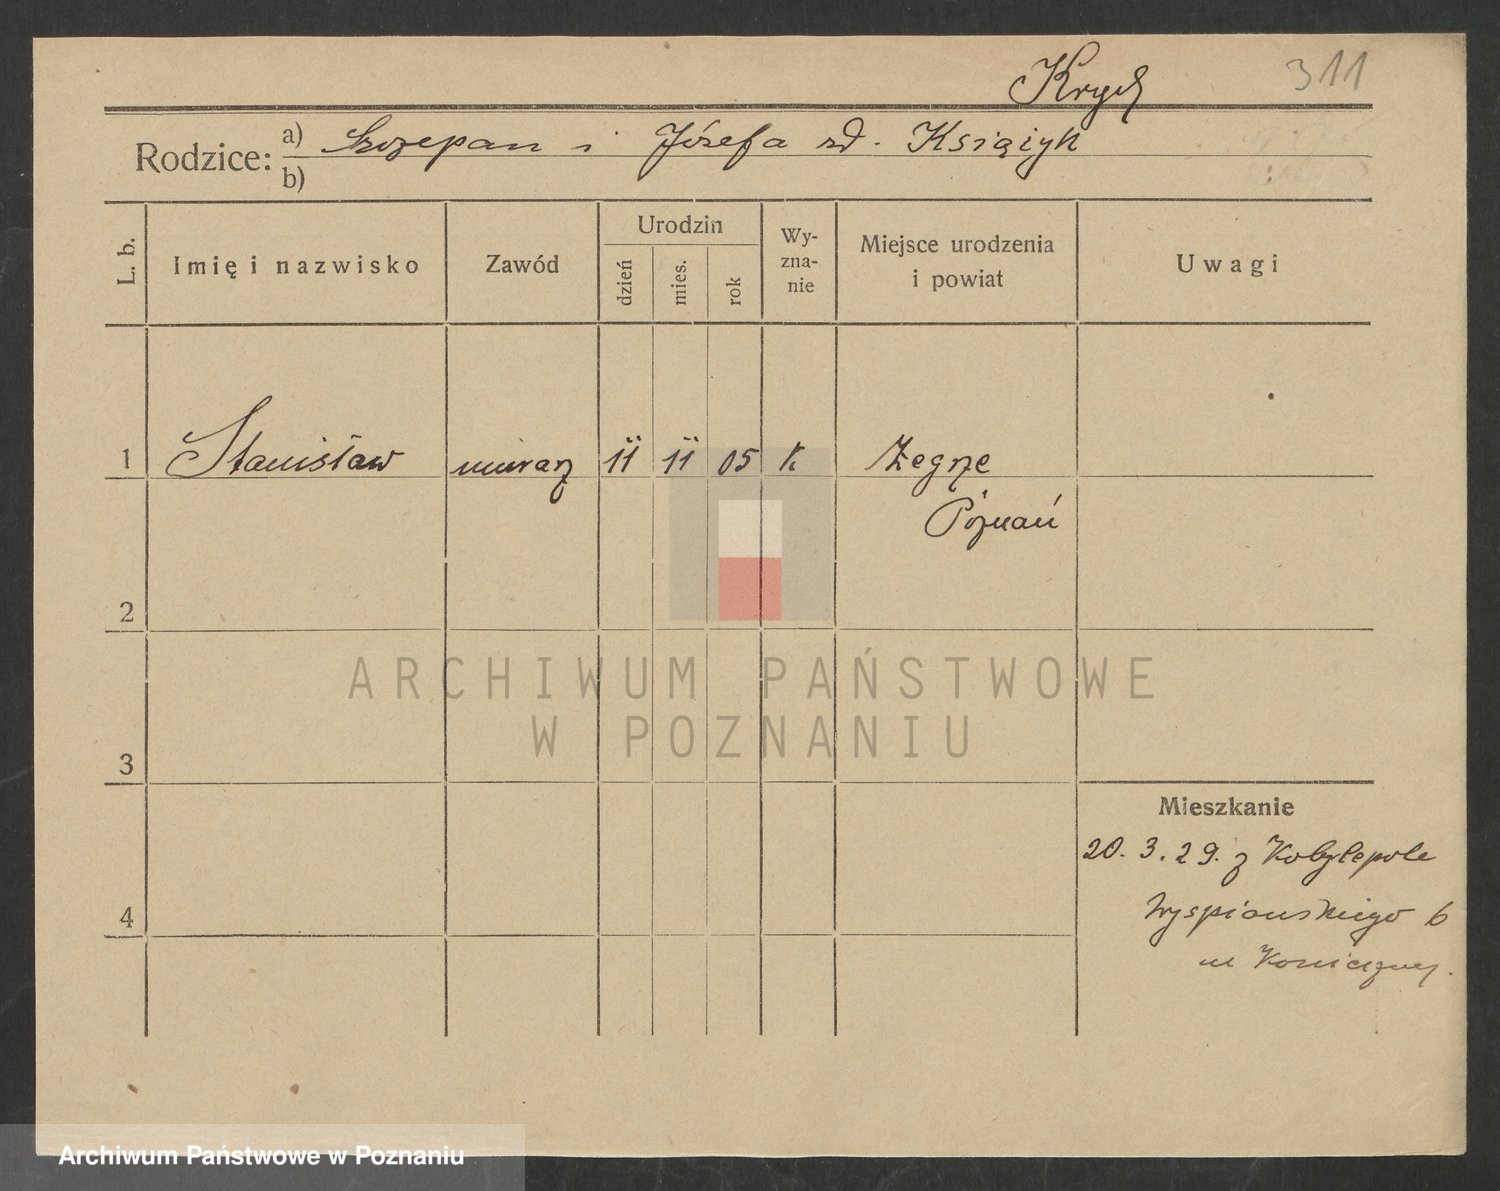 Krych 311
Rodzice: a) Szczepan i Józefa zd. Książyk
b)
L. b. Imię i nazwisko Zawód Urodzin dzień mies. rok Wy-zna-nie Miejsce urodzenia i powiat Uwagi
1 Stanisław murarz 11 11 05 k Żegrze
Poznań
2
ARCHIWUM PAŃSTWOWE
W POZNANIU
3
Mieszkanie
20. 3. 29. z Kobylepole
4 Wyspiańskiego 6
u
Archiwum Państwowe w Poznaniu